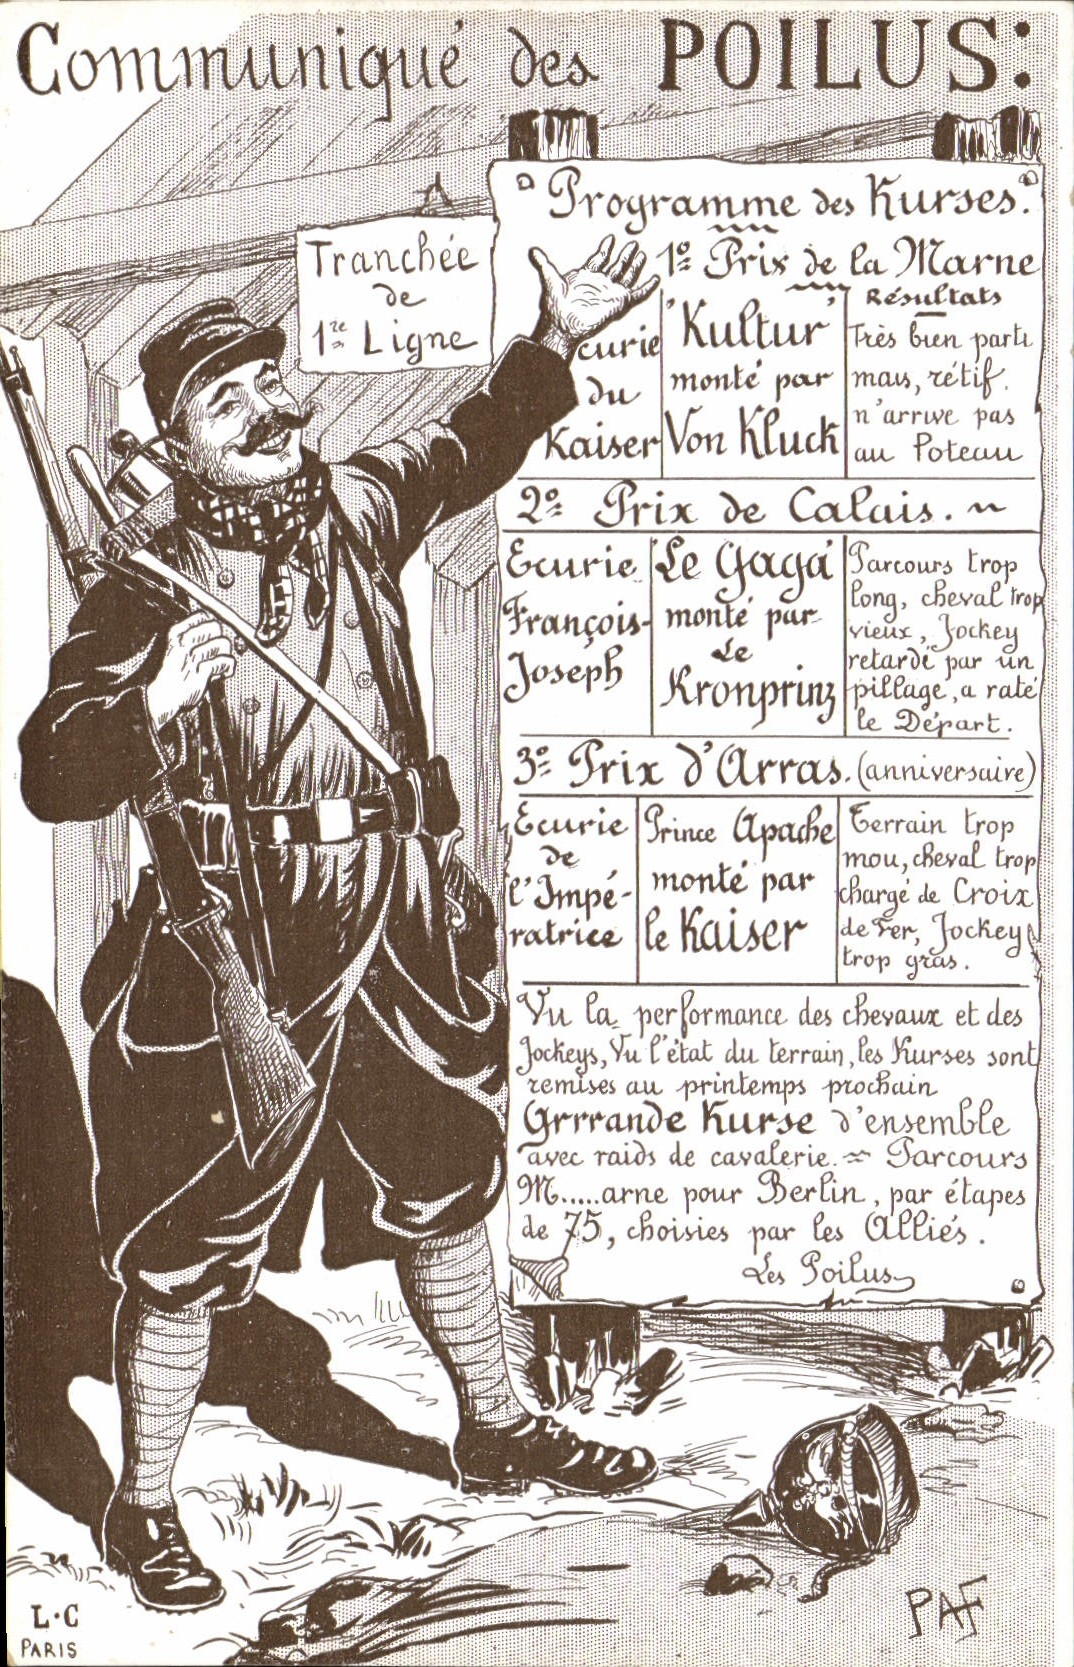 Communiqué des POILUS:
Tranchée
de
1re Ligne
"Programme des Kurses."
1o Prix de la Marne
curie
du
Kaiser
"Kultur"
monté par
Von Kluck
Résultats
Très bien parti
mais, rétif.
n'arrive pas
au Poteau
2o Prix de Calais.
Ecurie
François-
Joseph
Le Gaga
monté par
Le
Kronprinz
Parcours trop
long, cheval trop
vieux, Jockey
retardé par un
pillage, a raté
le Départ.
3o Prix d'Arras. (anniversaire)
Ecurie
de
l'Impé-
ratrice
Prince Apache
monté par
le Kaiser
Terrain trop
mou, cheval trop
chargé de Croix
de Fer, Jockey
trop gras.
Vu la performance des chevaux et des
Jockeys, Vu l'état du terrain, les Kurses sont
remises au printemps prochain
Grrrande Kurse d'ensemble
avec raids de cavalerie. Parcours
M.....arne pour Berlin, par étapes
de 75, choisies par les Alliés.
Les Poilus
PAF
L·C
PARIS